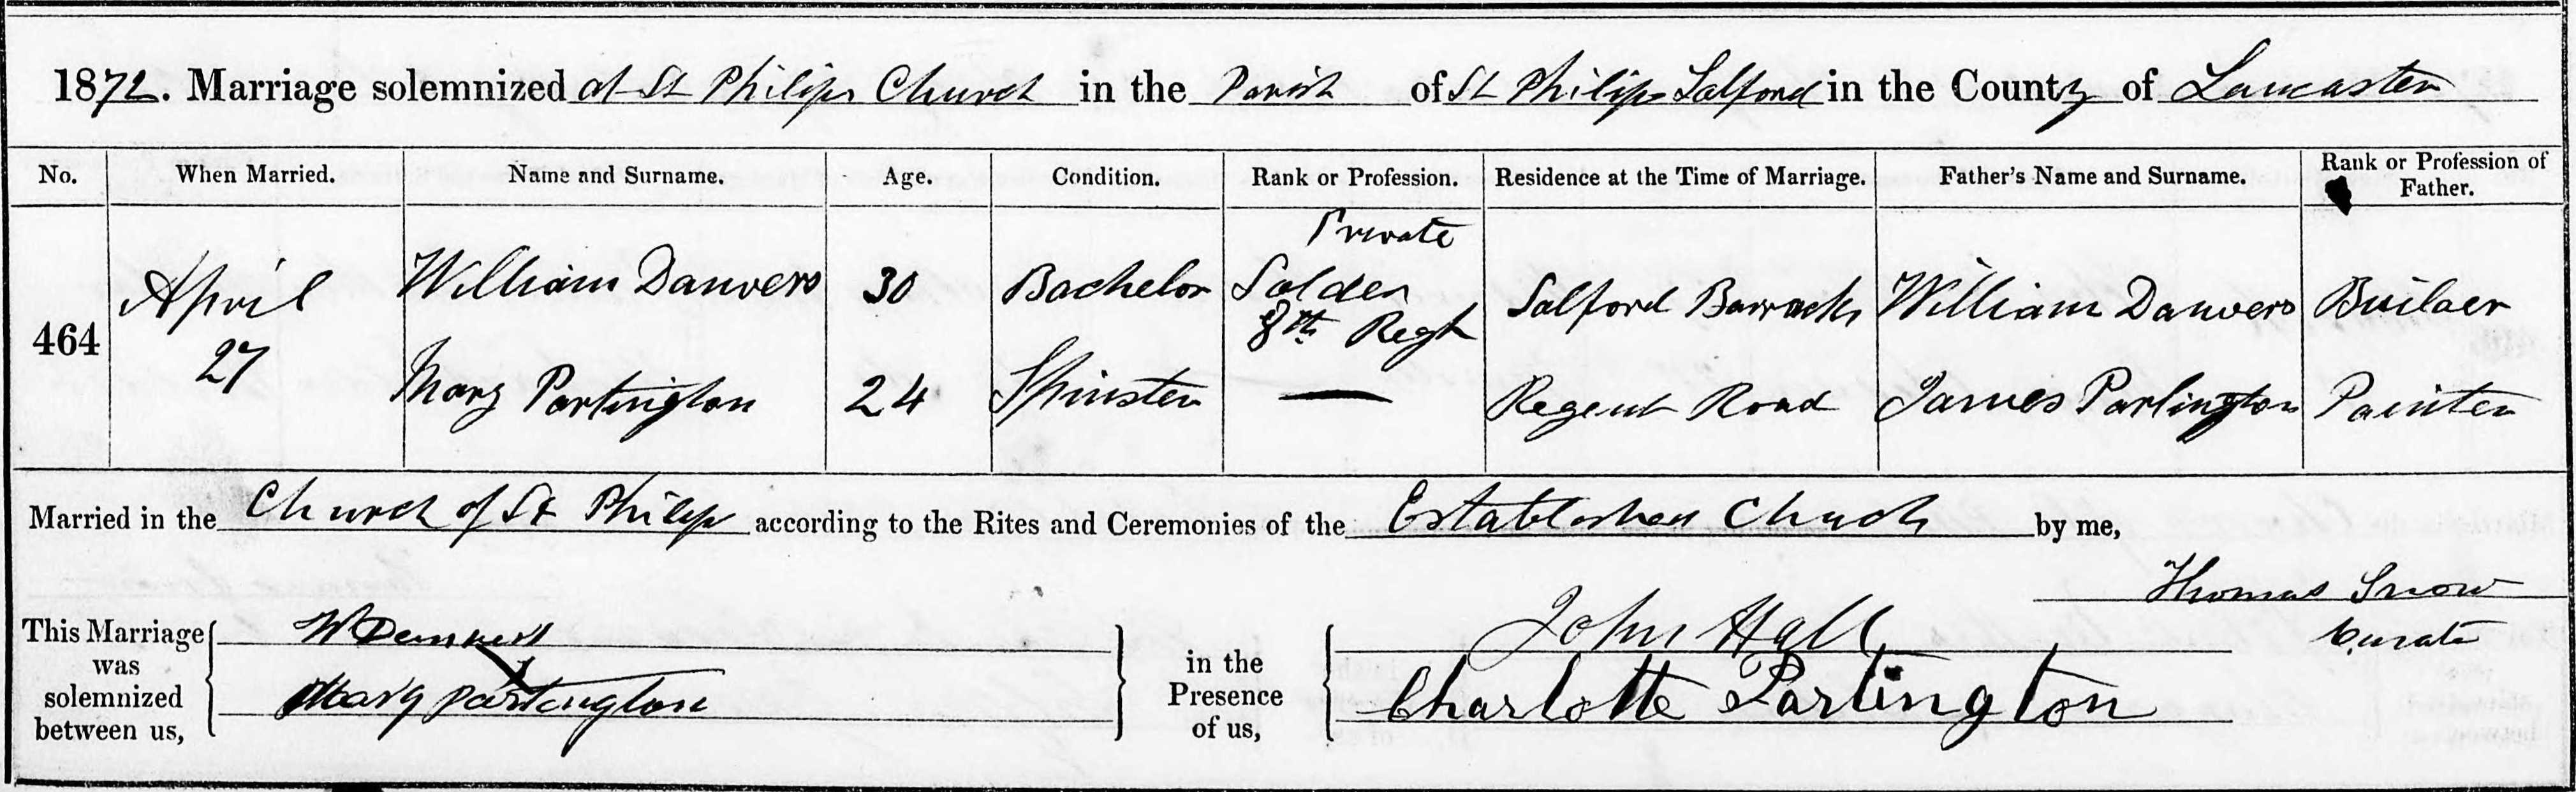 1872. Marriage solemnized at St Philips Church in the Parish of St Philips Salford in the County of Lancaster
No. When Married. Name and Surname. Age. Condition. Rank or Profession. Residence at the Time of Marriage. Father's Name and Surname. Rank or Profession of Father.
464 April 27
William Danvers 30 Bachelor Private Soldier 8th Regt Salford Barracks William Danvers Builder
Mary Partington 24 Spinster — Regent Road James Partington Painter
Married in the Church of St Philip according to the Rites and Ceremonies of the Established Church by me,
Thomas Snow
Curate
This Marriage was solemnized between us,
W
Mary Partington
in the Presence of us,
John Hall
Charlotte Partington